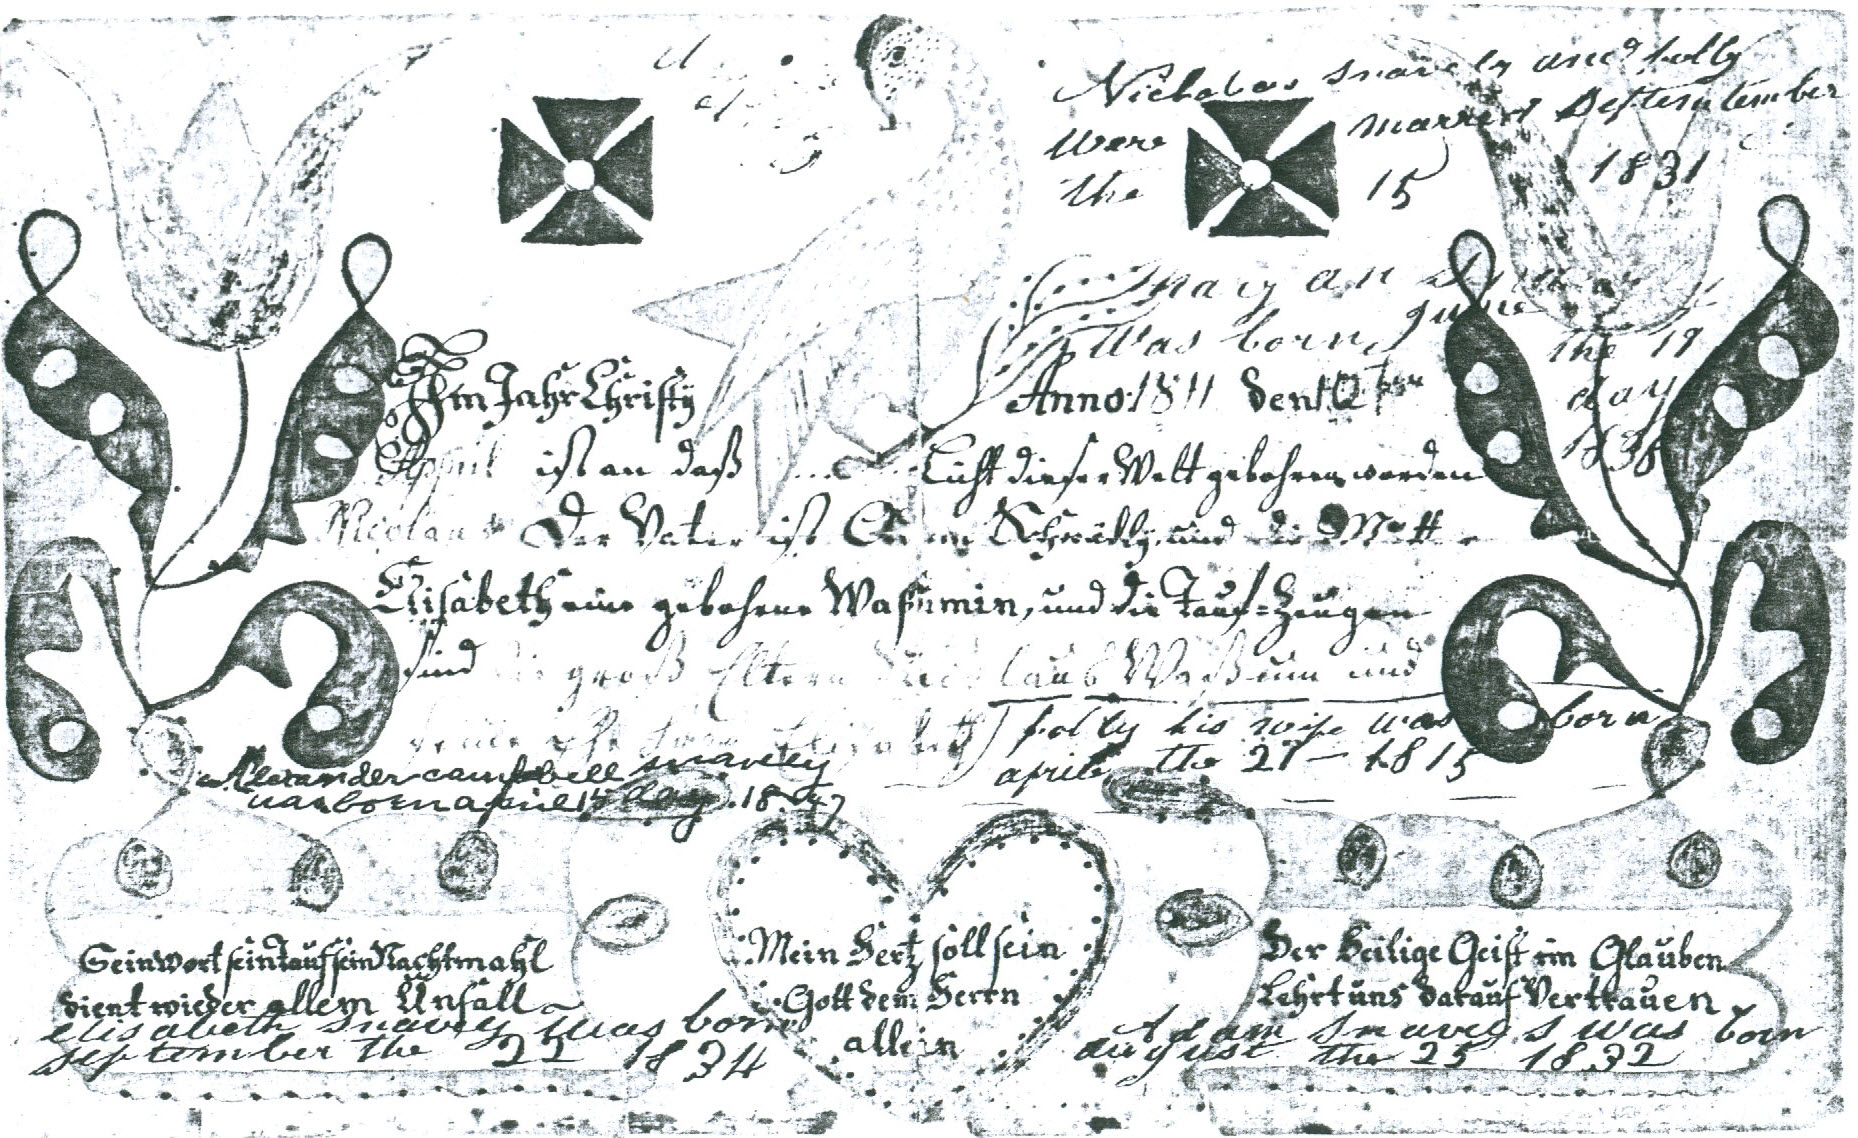 Nicholas snavely and polly
were married Deftemtember
the 15 1831
mary an
was born June the 17
day
1836
Im Jahr Christy Anno 1811 den 12
Appril ist an daß Licht dieser Welt gebohren worden
Nicolaus Der Vater ist und die
Elisabeth eine gebohrne Waßumin, und die Tauf-Zeugen
sind die groß Eltern Waßum und
polly his wife was born
april the 27 - 1815
Alexander campbell snaveley
was born apriel 15 day 1847
Sein wort sein tauf sein Nachtmahl
dient wieder allem Unfall
Mein Hertz soll sein
Gott dem Herrn
allein
Der Heilige Geist im Glauben
Lehrt uns darauf Vertrauen
elisabeth snavely was born
september the 22 1834
Adam snavely s was born
august the 25 1832